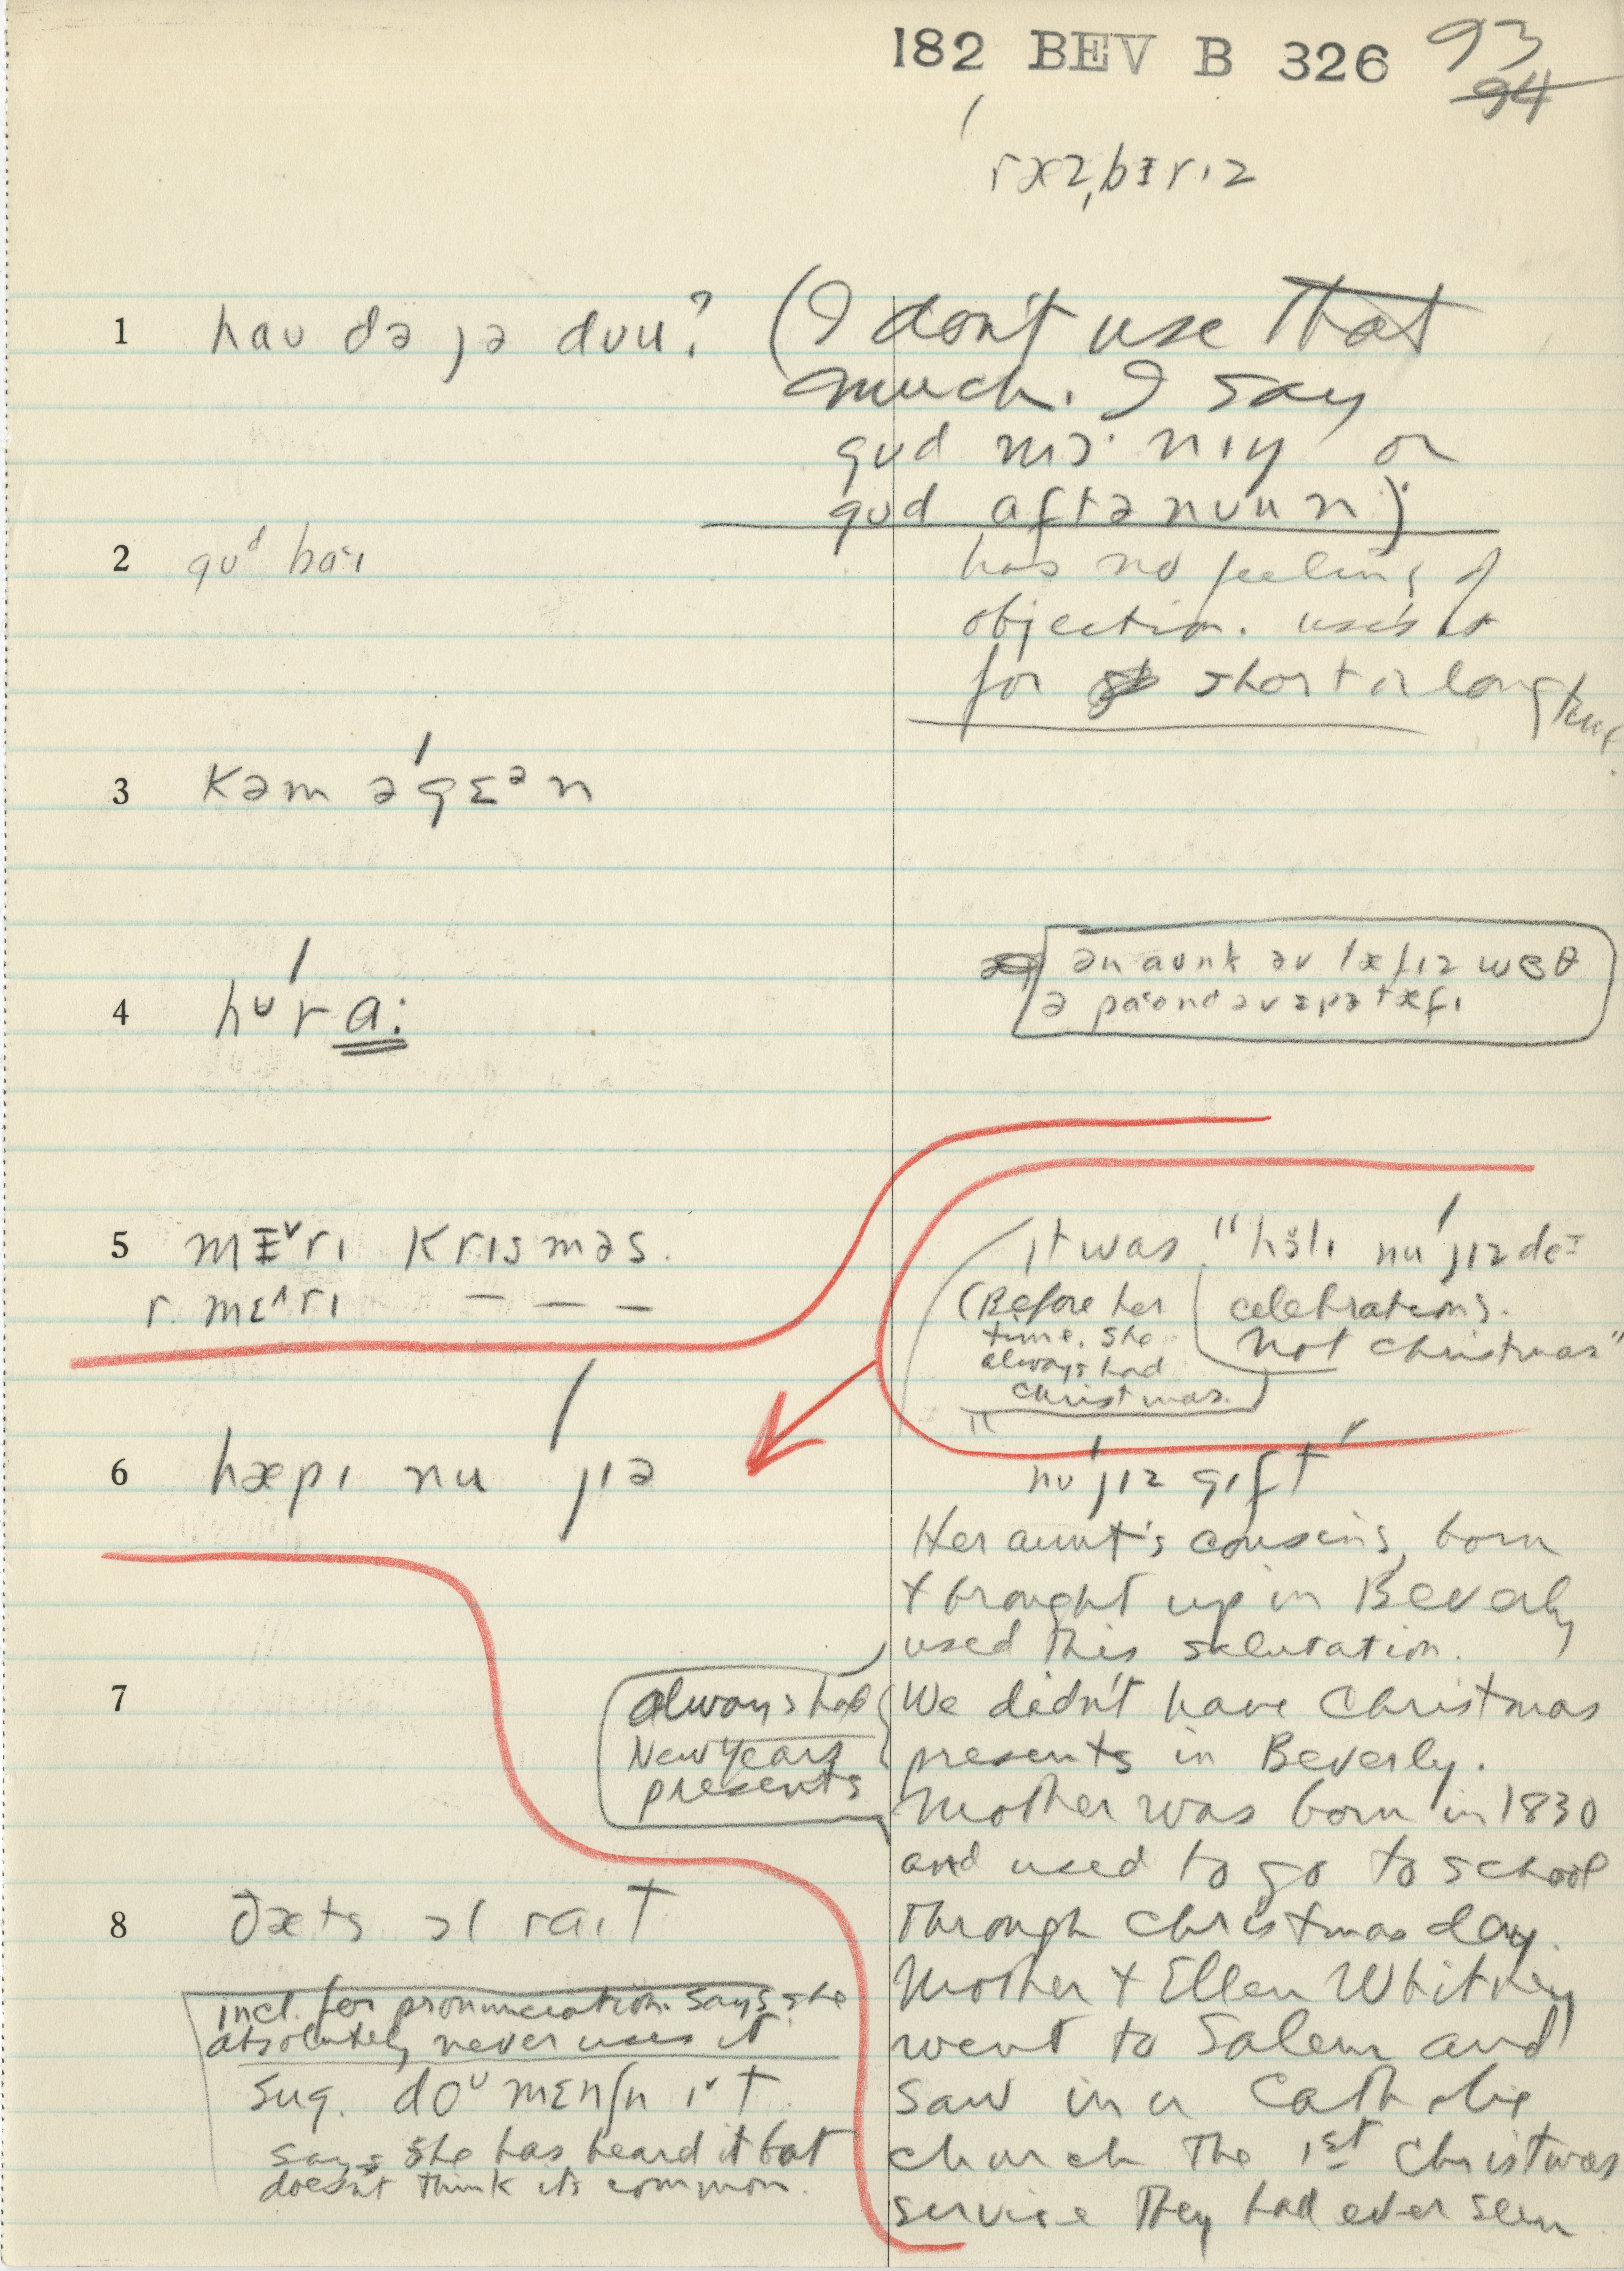 182 BEV B 326 93
94
ræzˌbɛrɪz
1 haʊ də jə dʊu? (I don't use that
much. I say
gʊd mɔ·nɪŋ or
gʊd aftənʊun)
2 gʊᵈ baɪ has no feeling of
objection. uses it
for short or long time.
3 kəm əˈgɛᵊn
4 hʊˈra:
ən aʊns əv læfɪz wɜθ
ə paʊnd əv
5 mɛ˅rɪ krɪsməs.
r. mɛ˄rɪ — — —
it was "hɔlɪ nu ˈjɪz de
(Before her
time. She
always had
Christmas.)
celebrations.
not Christmas"
6 hæpɪ nu ˈjɪə
nu ˈjɪz gɪft
Her aunt's cousins, born
+ brought up in Beverly
used this salutation.
7 always had
New Years
presents
We didn't have Christmas
presents in Beverly.
Mother was born in 1830
and used to go to school
8 ðæts ɔl raɪt
through Christmas day.
incl. for pronunciation. Says she
absolutely never uses it
sug. doʊ mɛnʃn ɪ˅t.
says she has heard it but
doesn't think it's common.
Mother + Ellen Whitney
went to Salem and
saw in a Catholic
church the 1st Christmas
service they had ever seen